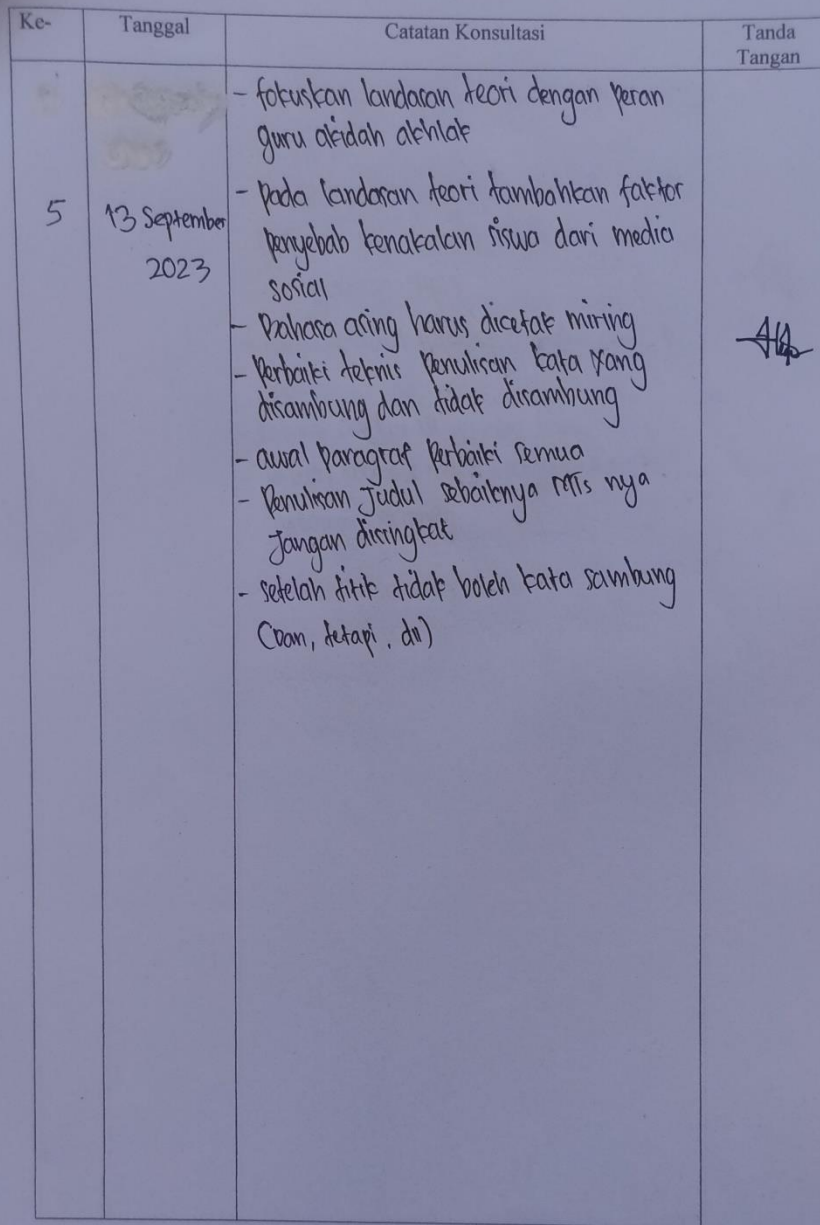 Ke-
Tanggal
Catatan Konsultasi
Tanda
Tangan
- fokuskan landasan teori dengan peran
guru akidah akhlak
- pada landasan teori tambahkan faktor
penyebab kenakalan siswa dari media
sosial
5
13 September
2023
- Bahasa asing harus dicetak miring
- Perbaiki teknis penulisan kata yang
disambung dan tidak disambung
- awal paragraf perbaiki semua
- Penulisan judul sebaiknya MTs nya
jangan disingkat
- setelah titik tidak boleh kata sambung
(Dan, tetapi, dll)